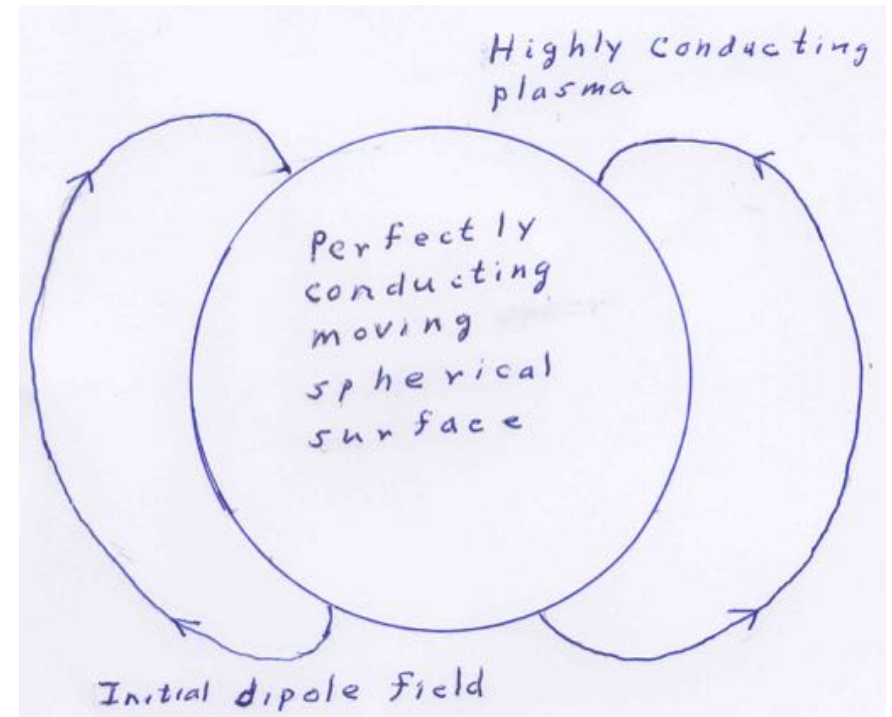 Highly conducting
plasma
Perfectly
conducting
moving
spherical
surface
Initial dipole field